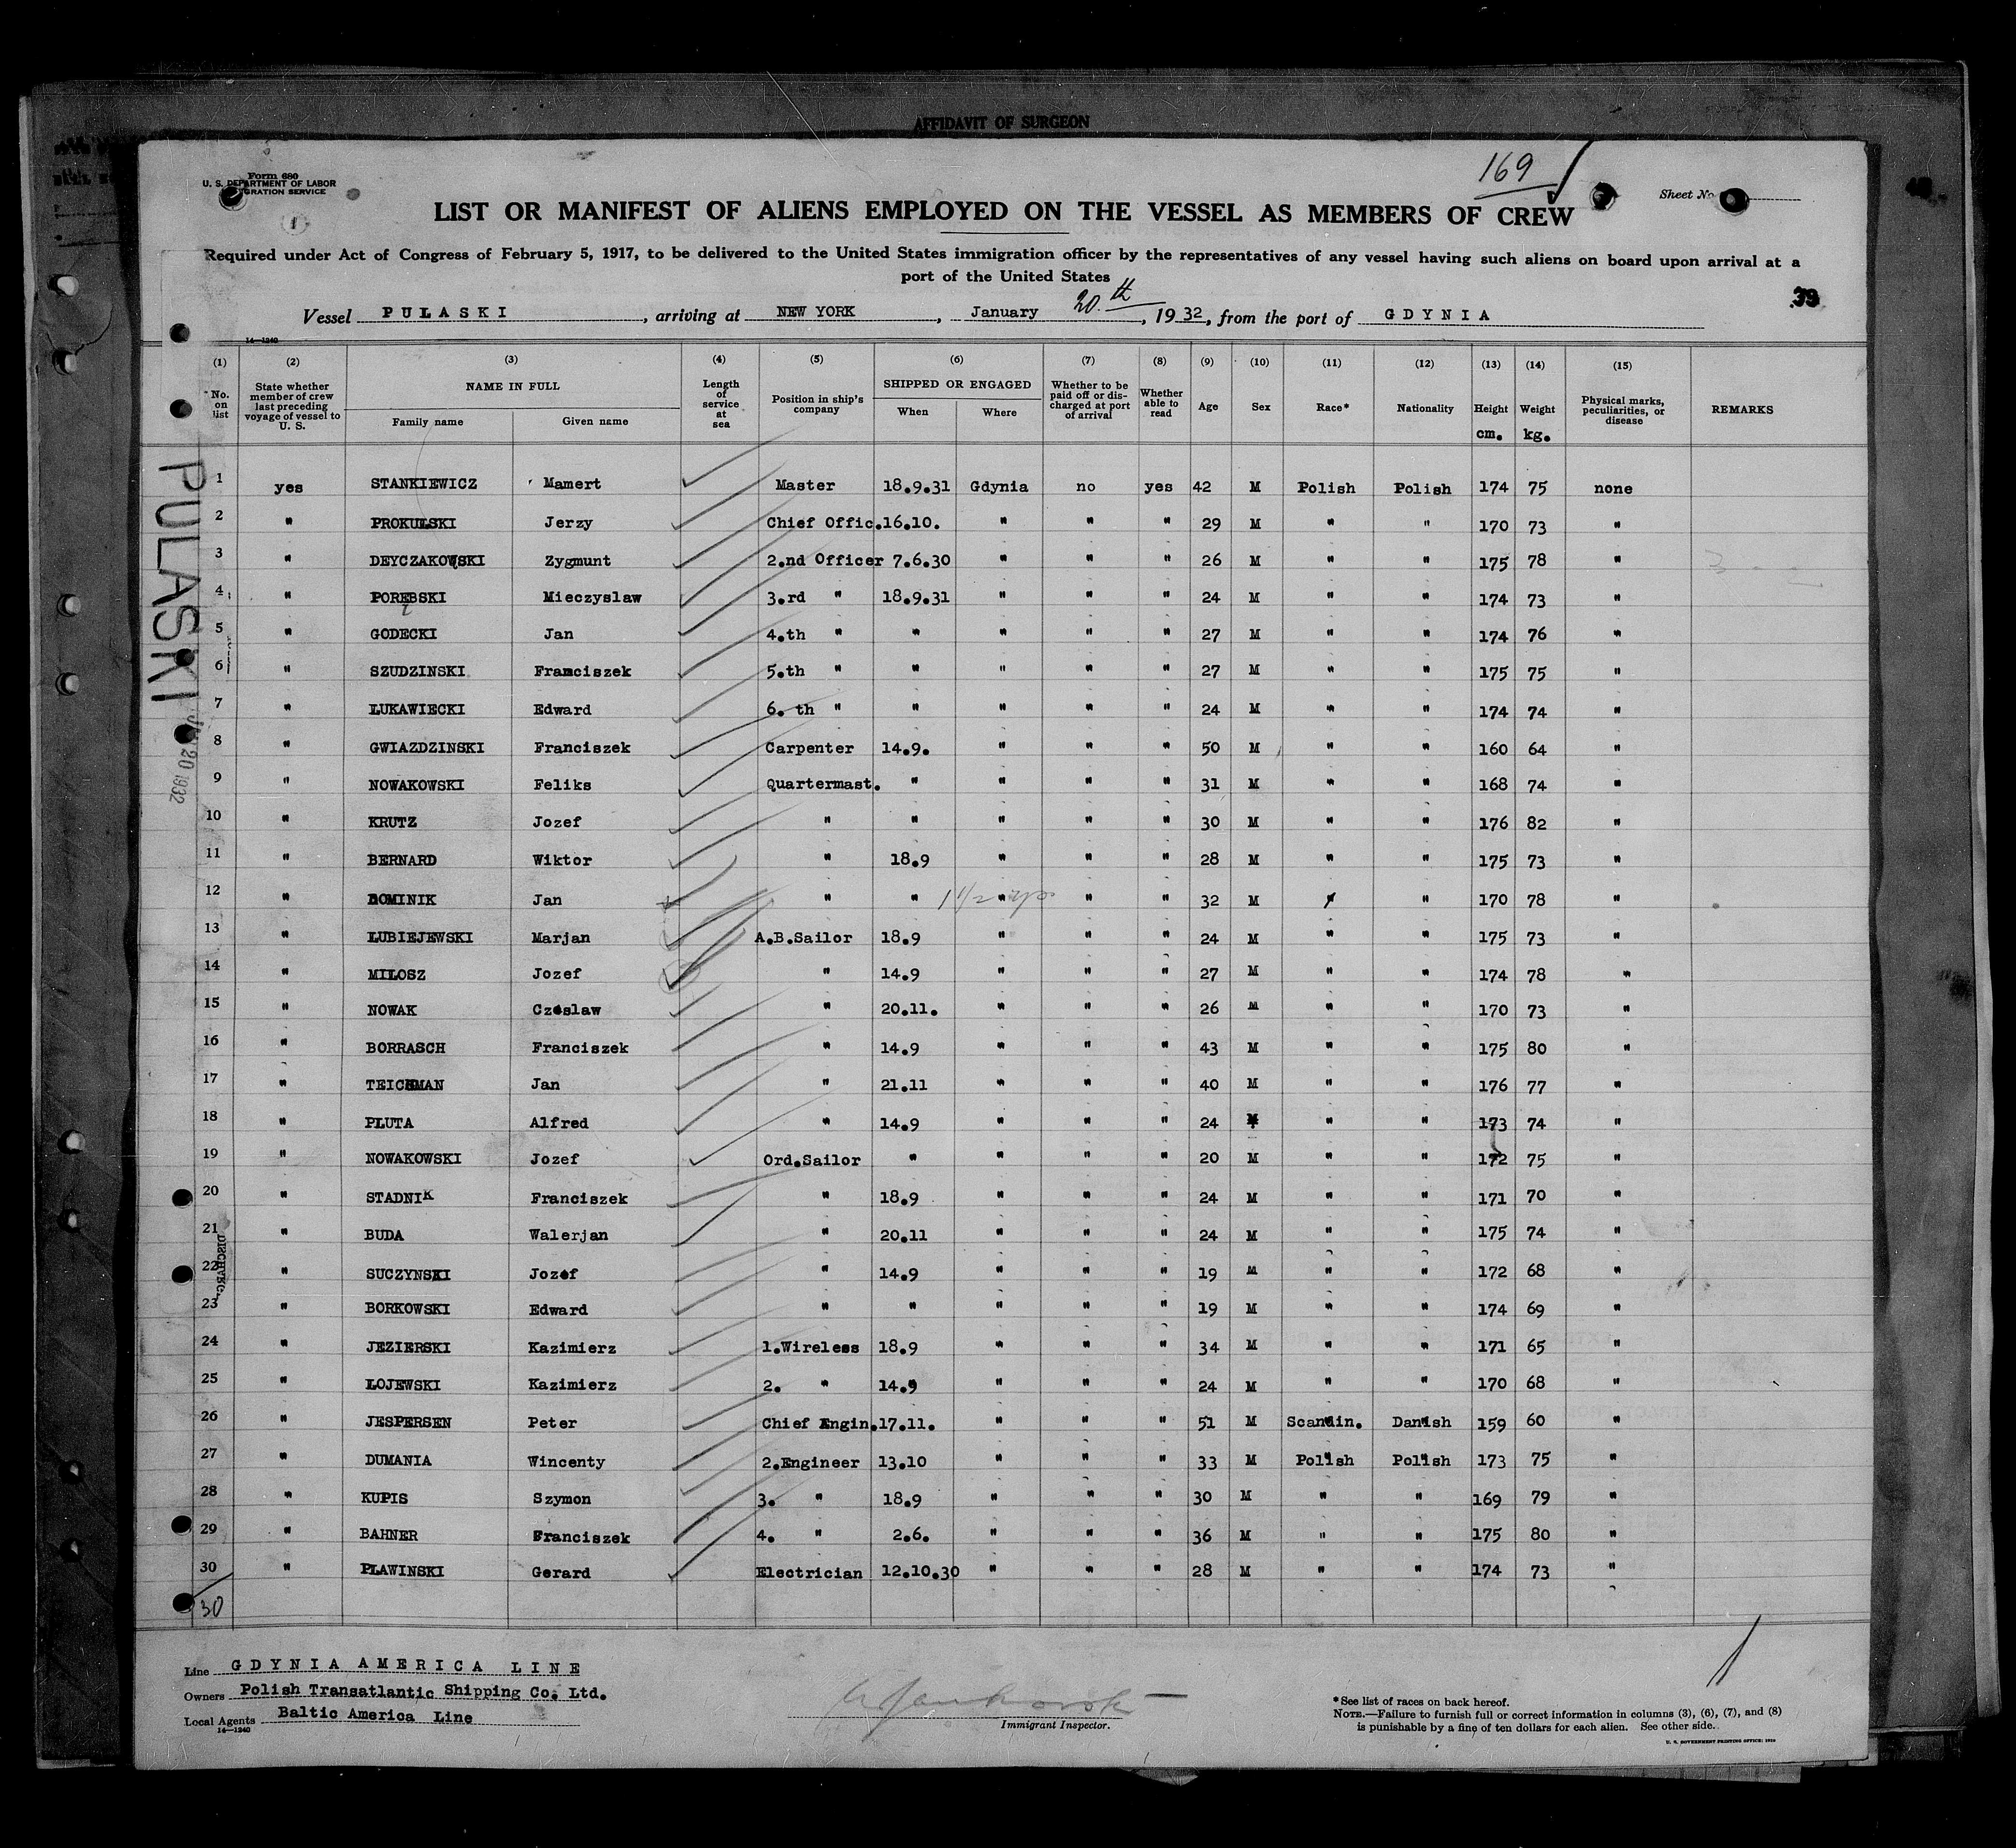 AFFIDAVIT OF SURGEON
169
Form 680
U. S. DEPARTMENT OF LABOR
IMMIGRATION SERVICE
Sheet No.
1
LIST OR MANIFEST OF ALIENS EMPLOYED ON THE VESSEL AS MEMBERS OF CREW
Required under Act of Congress of February 5, 1917, to be delivered to the United States immigration officer by the representatives of any vessel having such aliens on board upon arrival at a
port of the United States
39
Vessel PULASKI, arriving at NEW YORK, January 20.th, 1932, from the port of GDYNIA
14—1240
(1) (2) (3) (4) (5) (6) (7) (8) (9) (10) (11) (12) (13) (14) (15)
No. on list State whether member of crew last preceding voyage of vessel to U. S. NAME IN FULL Family name Given name Length of service at sea Position in ship's company SHIPPED OR ENGAGED When Where Whether to be paid off or discharged at port of arrival Whether able to read Age Sex Race* Nationality Height cm. Weight kg. Physical marks, peculiarities, or disease REMARKS
1 yes STANKIEWICZ Mamert Master 18.9.31 Gdynia no yes 42 M Polish Polish 174 75 none
2 " PROKULSKI Jerzy Chief Offic. 16.10. " " " 29 M " " 170 73 "
3 " DEYCZAKOWSKI Zygmunt 2.nd Officer 7.6.30 " " " 26 M " " 175 78 "
4 " POREBSKI Mieczyslaw 3.rd " 18.9.31 " " " 24 M " " 174 73 "
5 " GODECKI Jan 4.th " " " " " 27 M " " 174 76 "
6 " SZUDZINSKI Franciszek 5.th " " " " " 27 M " " 175 75 "
7 " LUKAWIECKI Edward 6. th " " " " " 24 M " " 174 74 "
8 " GWIAZDZINSKI Franciszek Carpenter 14.9. " " " 50 M " " 160 64 "
9 " NOWAKOWSKI Feliks Quartermast. " " " " 31 M " " 168 74 "
10 " KRUTZ Jozef " " " " " 30 M " " 176 82 "
11 " BERNARD Wiktor " 18.9 " " " 28 M " " 175 73 "
12 " DOMINIK Jan " " 1 1/2 " " " 32 M " " 170 78 "
13 " LUBIEJEWSKI Marjan A.B.Sailor 18.9 " " " 24 M " " 175 73 "
14 " MILOSZ Jozef " 14.9 " " " 27 M " " 174 78 "
15 " NOWAK Czeslaw " 20.11. " " " 26 M " " 170 73 "
16 " BORRASCH Franciszek " 14.9 " " " 43 M " " 175 80 "
17 " TEICHMAN Jan " 21.11 " " " 40 M " " 176 77 "
18 " PLUTA Alfred " 14.9 " " " 24 M " " 173 74 "
19 " NOWAKOWSKI Jozef Ord.Sailor " " " " 20 M " " 172 75 "
20 " STADNIK Franciszek " 18.9 " " " 24 M " " 171 70 "
21 " BUDA Walerjan " 20.11 " " " 24 M " " 175 74 "
22 " SUCZYNSKI Jozef " 14.9 " " " 19 M " " 172 68 "
23 " BORKOWSKI Edward " " " " " 19 M " " 174 69 "
24 " JEZIERSKI Kazimierz 1.Wireless 18.9 " " " 34 M " " 171 65 "
25 " LOJEWSKI Kazimierz 2. " 14.9 " " " 24 M " " 170 68 "
26 " JESPERSEN Peter Chief Engin. 17.11. " " " 51 M Scandin. Danish 159 60 "
27 " DUMANIA Wincenty 2.Engineer 13.10 " " " 33 M Polish Polish 173 75 "
28 " KUPIS Szymon 3. " 18.9 " " " 30 M " " 169 79 "
29 " BAHNER Franciszek 4. " 2.6. " " " 36 M " " 175 80 "
30 " PLAWINSKI Gerard Electrician 12.10.30 " " " 28 M " " 174 73 "
30
PULASKI
20 1932
DISCHARG.
Line GDYNIA AMERICA LINE
Owners Polish Transatlantic Shipping Co. Ltd.
Local Agents Baltic America Line
14—1240
Immigrant Inspector.
*See list of races on back hereof.
NOTE.—Failure to furnish full or correct information in columns (3), (6), (7), and (8)
is punishable by a fine of ten dollars for each alien. See other side.
U. S. GOVERNMENT PRINTING OFFICE: 1929